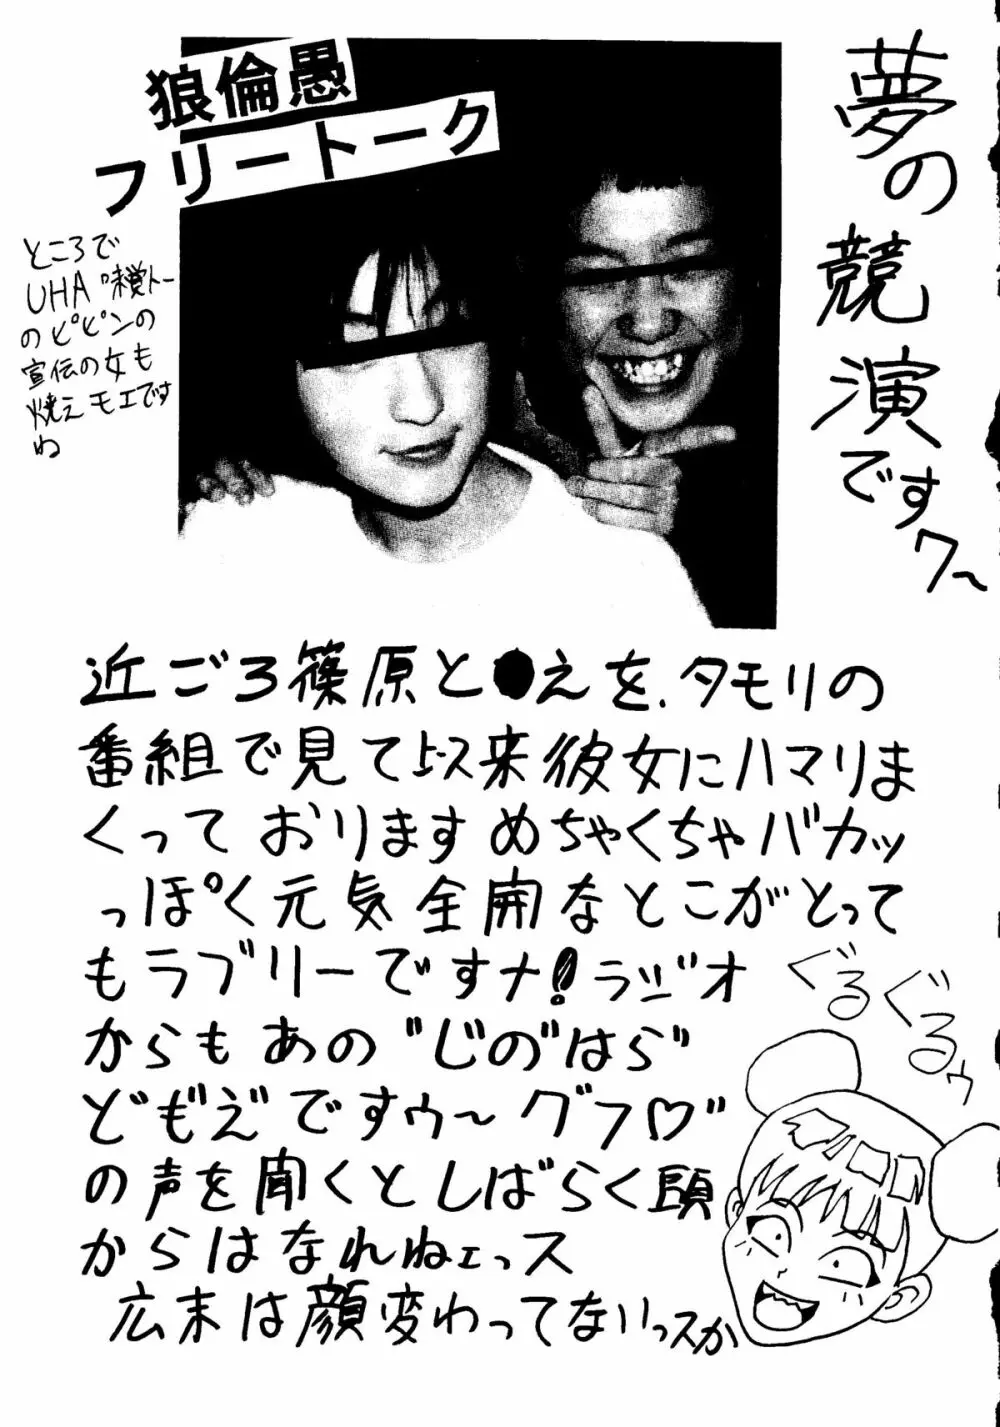 狼倫愚
フリートーク
夢の競演ですワ〜
ところで
UHA味覚トー
のピピンの
宣伝の女も
焼えモエです
ね
近ごろ篠原と●えを、タモリの
番組で見て以来彼女にハマりま
くっております めちゃくちゃバカッ
っぽく元気全開なとこがとって
もラブリーですナ!ラジオ
からもあの"じの"はら"
ども"え"ですゥ〜グフ♡"
の声を聞くとしばらく頭
からはなれねェっス
広末は顔変わってないっスか
ぐるぐるゥ